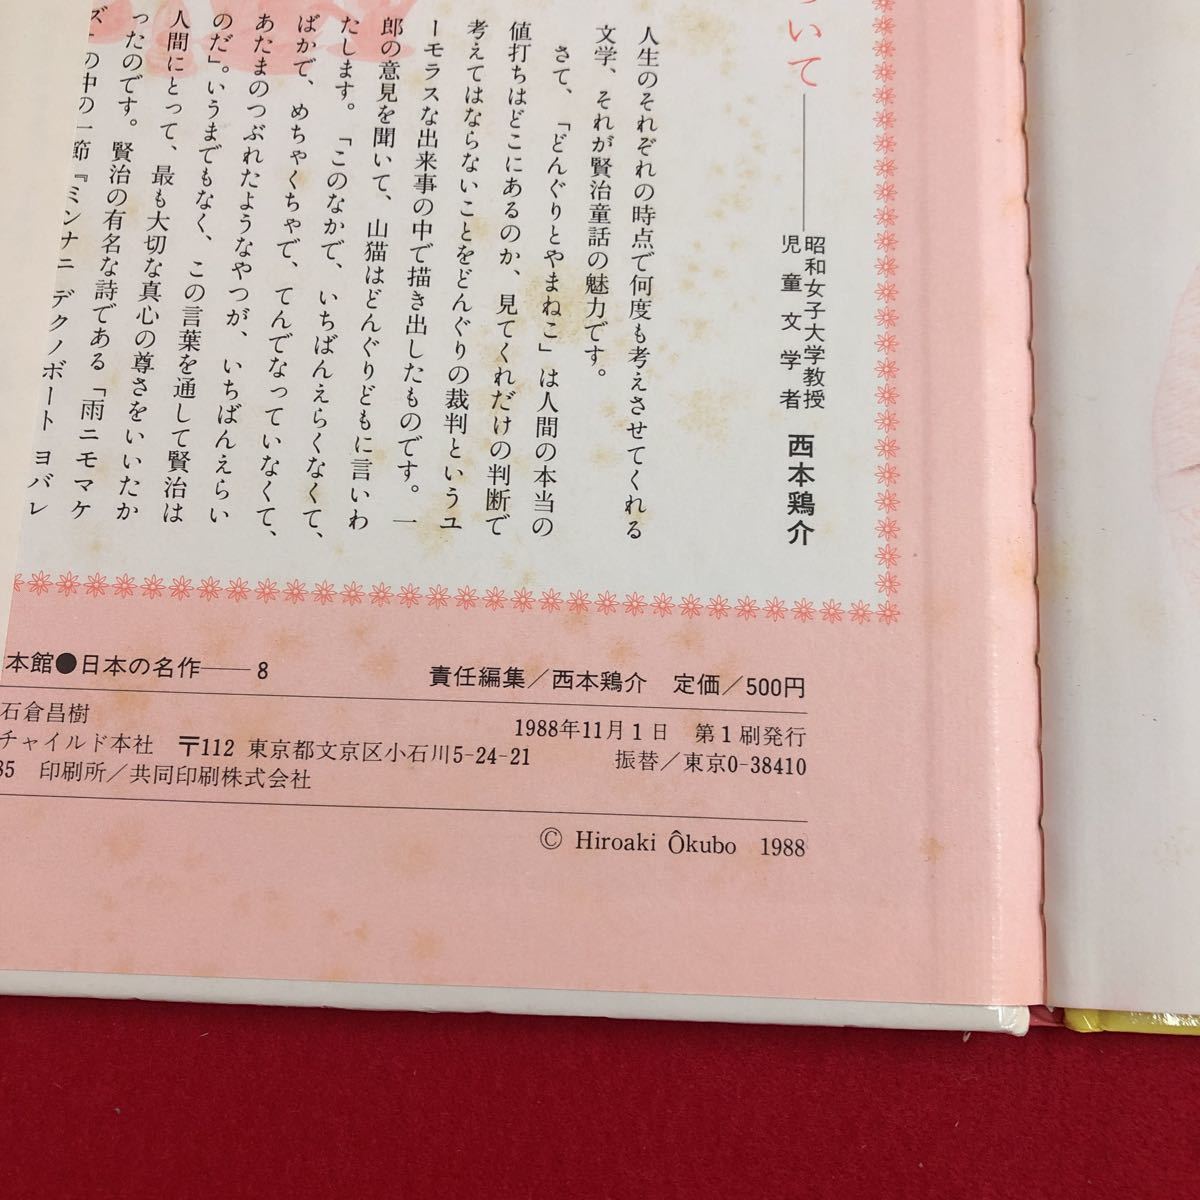 ついて――昭和女子大学教授
児童文学者 西本鶏介
人生のそれぞれの時点で何度も考えさせてくれる
文学、それが賢治童話の魅力です。
さて、「どんぐりとやまねこ」は人間の本当の
値打ちはどこにあるのか、見てくれだけの判断で
考えてはならないことをどんぐりの裁判というユ
ーモラスな出来事の中で描き出したものです。一
郎の意見を聞いて、山猫はどんぐりどもに言いわ
たします。「このなかで、いちばんえらくなくて、
ばかで、めちゃくちゃで、てんでなっていなくて、
あたまのつぶれたようなやつが、いちばんえらい
のだ」。いうまでもなく、この言葉を通して賢治は
人間にとって、最も大切な真心の尊さをいいたか
ったのです。賢治の有名な詩である「雨ニモマケ
ズ」の中の一節『ミンナニ デクノボート ヨバレ
本館●日本の名作――8 責任編集/西本鶏介 定価/500円
石倉昌樹 1988年11月1日 第1刷発行
チャイルド本社 〒112 東京都文京区小石川5-24-21 振替/東京0-38410
85 印刷所/共同印刷株式会社
© Hiroaki Ôkubo 1988